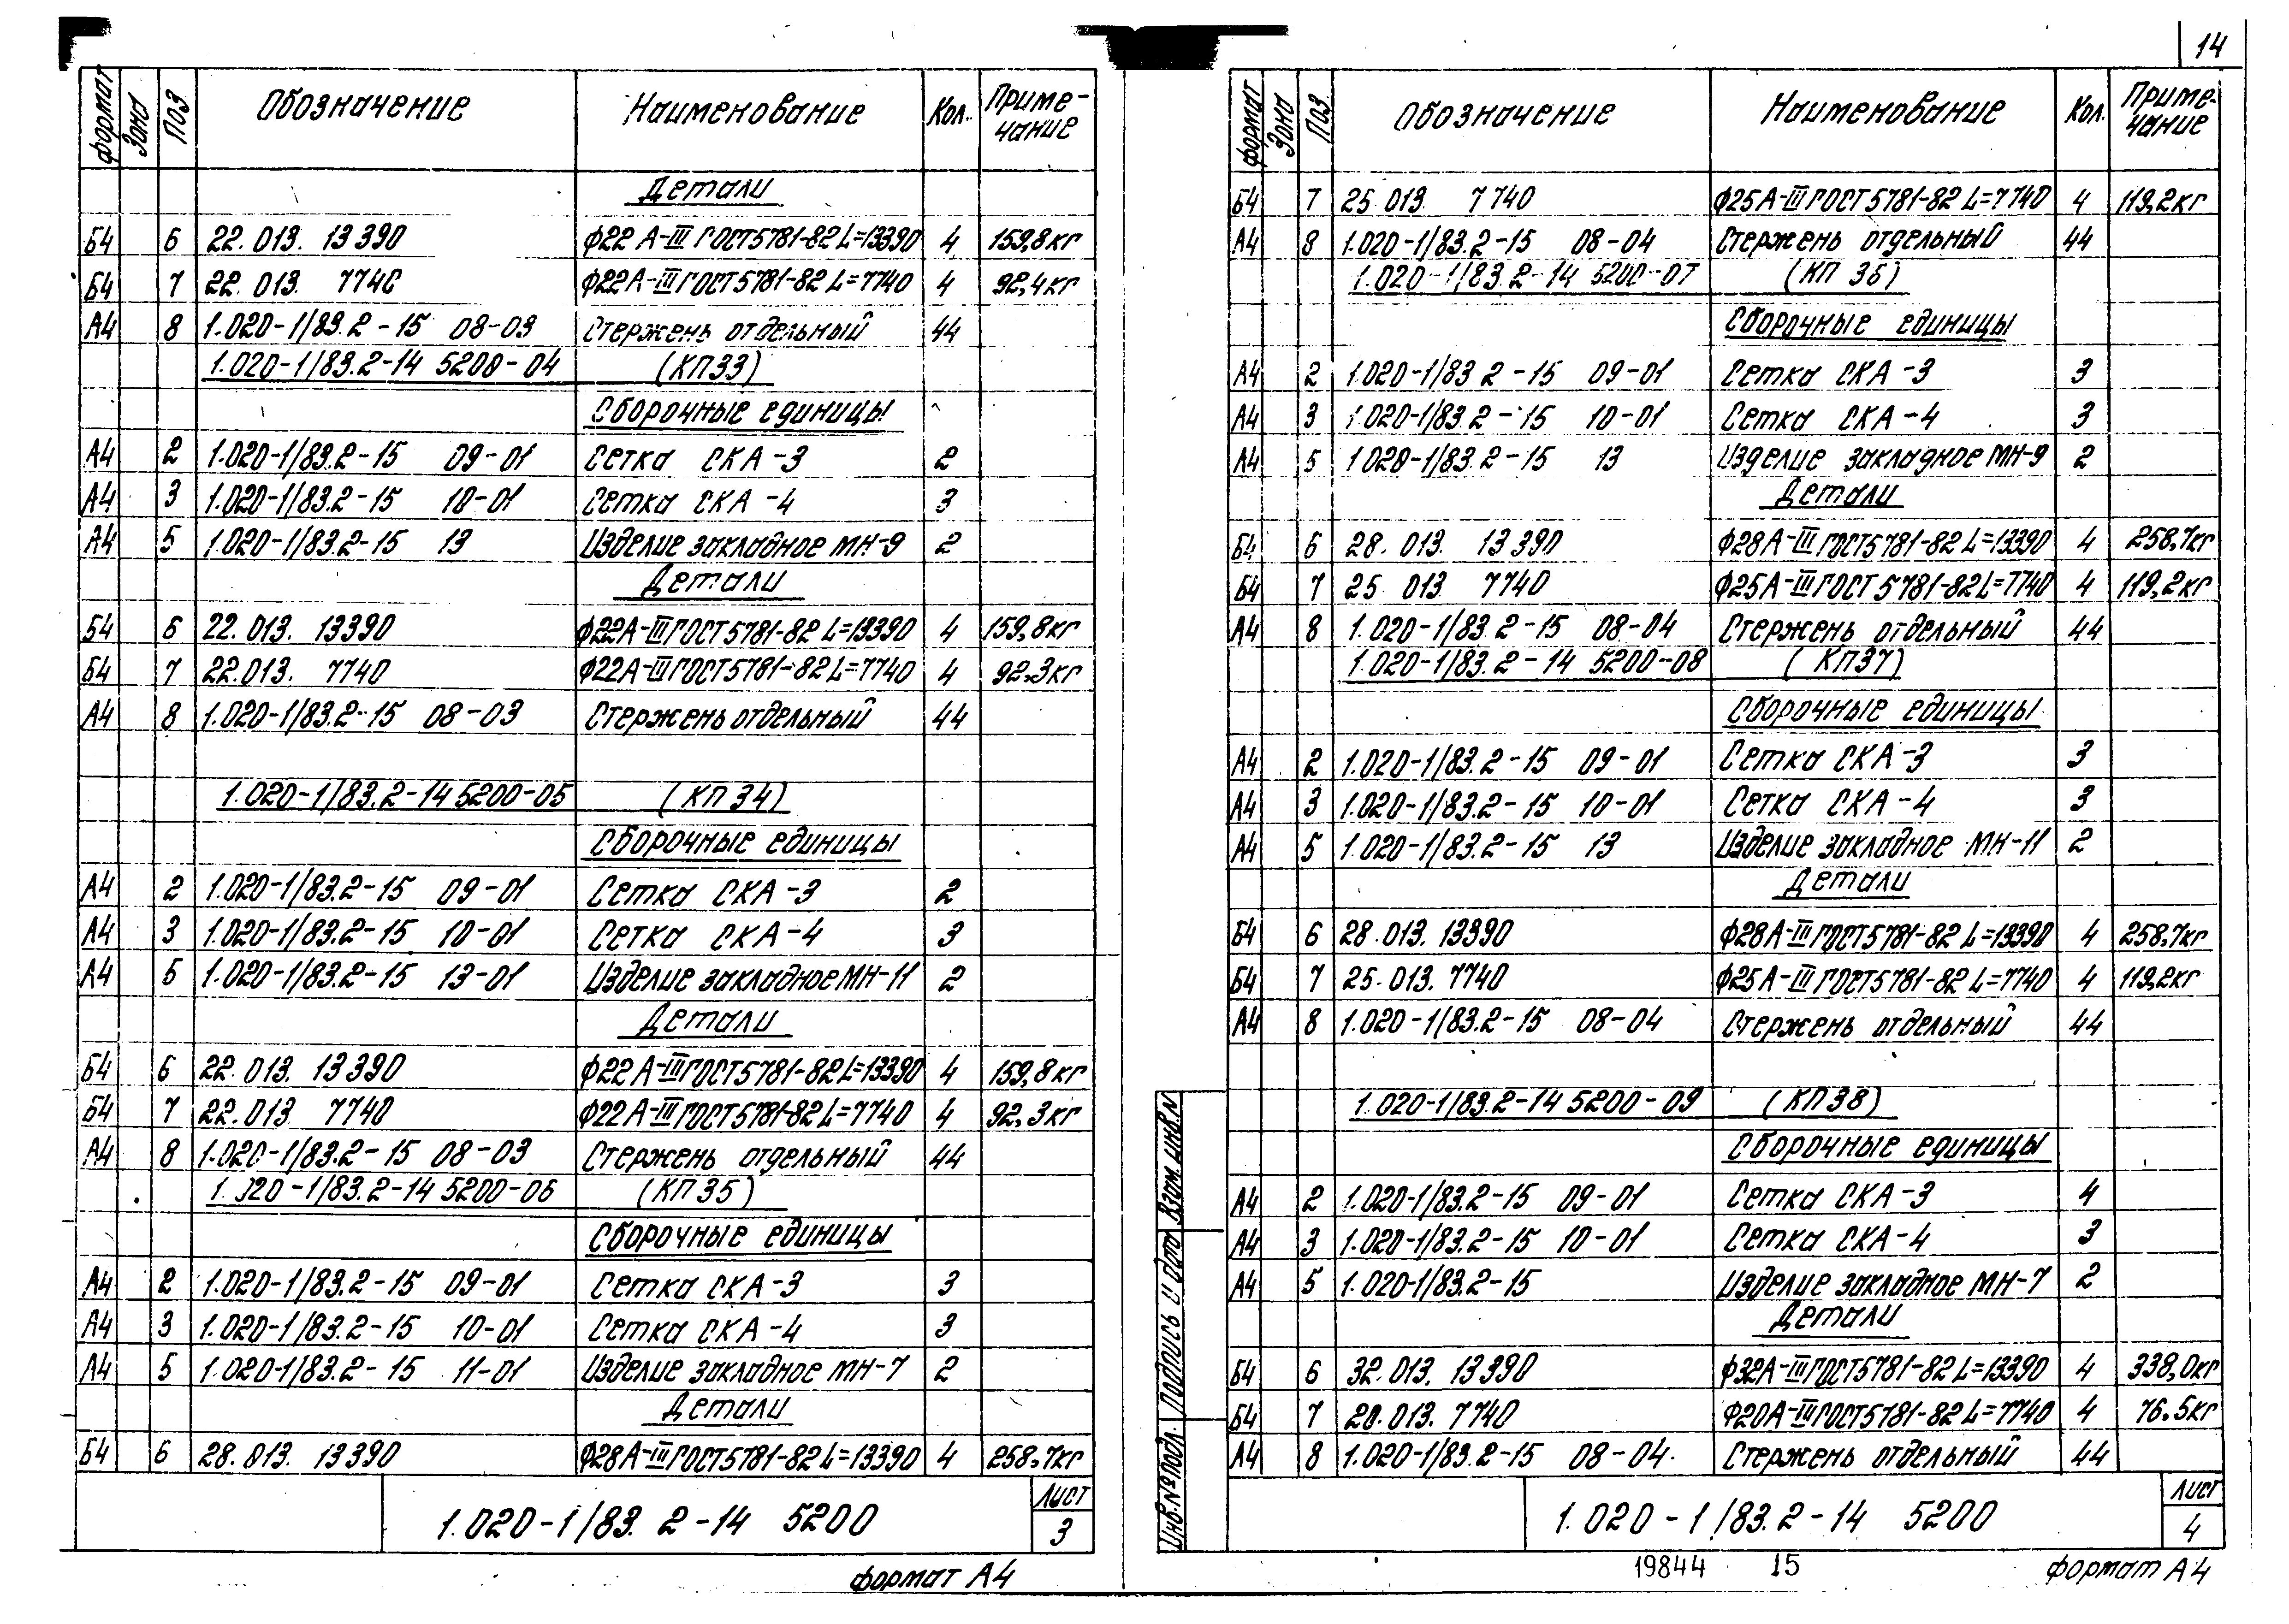 14
формат Зона Поз. Обозначение Наименование Кол. Приме-
чание
Детали
Б4 6 22.013. 13390 ф22 А-III ГОСТ5781-82 L=13390 4 159,8кг
Б4 7 22.013. 7740 ф22А-III ГОСТ5781-82 L=7740 4 92,4кг
А4 8 1.020-1/83.2-15 08-03 Стержень отдельный 44
1.020-1/83.2-14 5200-04 (КП33)
Сборочные единицы
А4 2 1.020-1/83.2-15 09-01 Сетка СКА-3 2
А4 3 1.020-1/83.2-15 10-01 Сетка СКА-4 3
А4 5 1.020-1/83.2-15 13 Изделие закладное МН-9 2
Детали
Б4 6 22.013. 13390 ф22А-III ГОСТ5781-82 L=13390 4 159,8кг
Б4 7 22.013. 7740 ф22А-III ГОСТ5781-82 L=7740 4 92.3кг
А4 8 1.020-1/83.2-15 08-03 Стержень отдельный 44
1.020-1/83.2-14 5200-05 (КП34)
Сборочные единицы
А4 2 1.020-1/83.2-15 09-01 Сетка СКА-3 2
А4 3 1.020-1/83.2-15 10-01 Сетка СКА-4 3
А4 5 1.020-1/83.2-15 13-01 Изделие закладное МН-11 2
Детали
Б4 6 22.013. 13390 ф22А-III ГОСТ5781-82 L=13390 4 159,8кг
Б4 7 22.013 7740 ф22А-III ГОСТ5781-82 L=7740 4 92,3кг
А4 8 1.020-1/83.2-15 08-03 Стержень отдельный 44
1.020-1/83.2-14 5200-06 (КП35)
Сборочные единицы
А4 2 1.020-1/83.2-15 09-01 Сетка СКА-3 3
А4 3 1.020-1/83.2-15 10-01 Сетка СКА-4 3
А4 5 1.020-1/83.2-15 11-01 Изделие закладное МН-7 2
Детали
Б4 6 28.013. 13390 ф28А-III ГОСТ5781-82 L=13390 4 258,7кг
1.020-1/83.2-14 5200
Лист
3
формат А4
формат Зона Поз. Обозначение Наименование Кол. Приме-
чание
Б4 7 25.013. 7740 ф25А-III ГОСТ5781-82 L=7740 4 119,2кг
А4 8 1.020-1/83.2-15 08-04 Стержень отдельный 44
1.020-1/83.2-14 5200-07 (КП 36)
Сборочные единицы
А4 2 1.020-1/83 2-15 09-01 Сетка СКА-3 3
А4 3 1.020-1/83.2-15 10-01 Сетка СКА-4 3
А4 5 1020-1/83.2-15 13 Изделие закладное МН-9 2
Детали
Б4 6 28.013. 13390 ф28А-III ГОСТ5781-82 L=13390 4 258,7кг
Б4 7 25 013 7740 ф25А-III ГОСТ 5781-82 L=7740 4 119,2кг
А4 8 1.020-1/83.2-15 08-04 Стержень отдельный 44
1.020-1/83.2-14 5200-08 (КП37)
Сборочные единицы
А4 2 1.020-1/83.2-15 09-01 Сетка СКА-3 3
А4 3 1.020-1/83.2-15 10-01 Сетка СКА-4 3
А4 5 1.020-1/83.2-15 13 Изделие закладное МН-11 2
Детали
Б4 6 28.013. 13390 ф28А-III ГОСТ5781-82 L=13390 4 258,7кг
Б4 7 25.013. 7740 ф25А-III ГОСТ5781-82 L=7740 4 119,2кг
А4 8 1.020-1/83.2-15 08-04 Стержень отдельный 44
1.020-1/83.2-14 5200-09 (КП38)
Сборочные единицы
А4 2 1.020-1/83.2-15 09-01 Сетка СКА-3 4
А4 3 1.020-1/83.2-15 10-01 Сетка СКА-4 3
А4 5 1.020-1/83.2-15 Изделие закладное МН-7 2
Детали
Б4 6 32.013. 13390 ф32А-III ГОСТ5781-82 L=13390 4 338,0кг
Б4 7 20.013. 7740 ф20А-III ГОСТ5781-82 L=7740 4 76.5кг
А4 8 1.020-1/83.2-15 08-04. Стержень отдельный 44
Инв.№ подл. Подпись и дата Взам.инв.N
1.020-1/83.2-14 5200
Лист
4
19844 15
формат А4